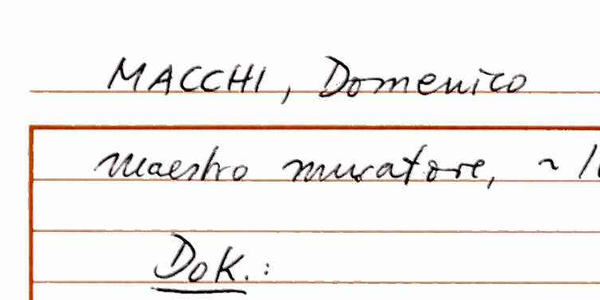 MACCHI, Domenico
Maestro muratore, ~ 1
Dok.: